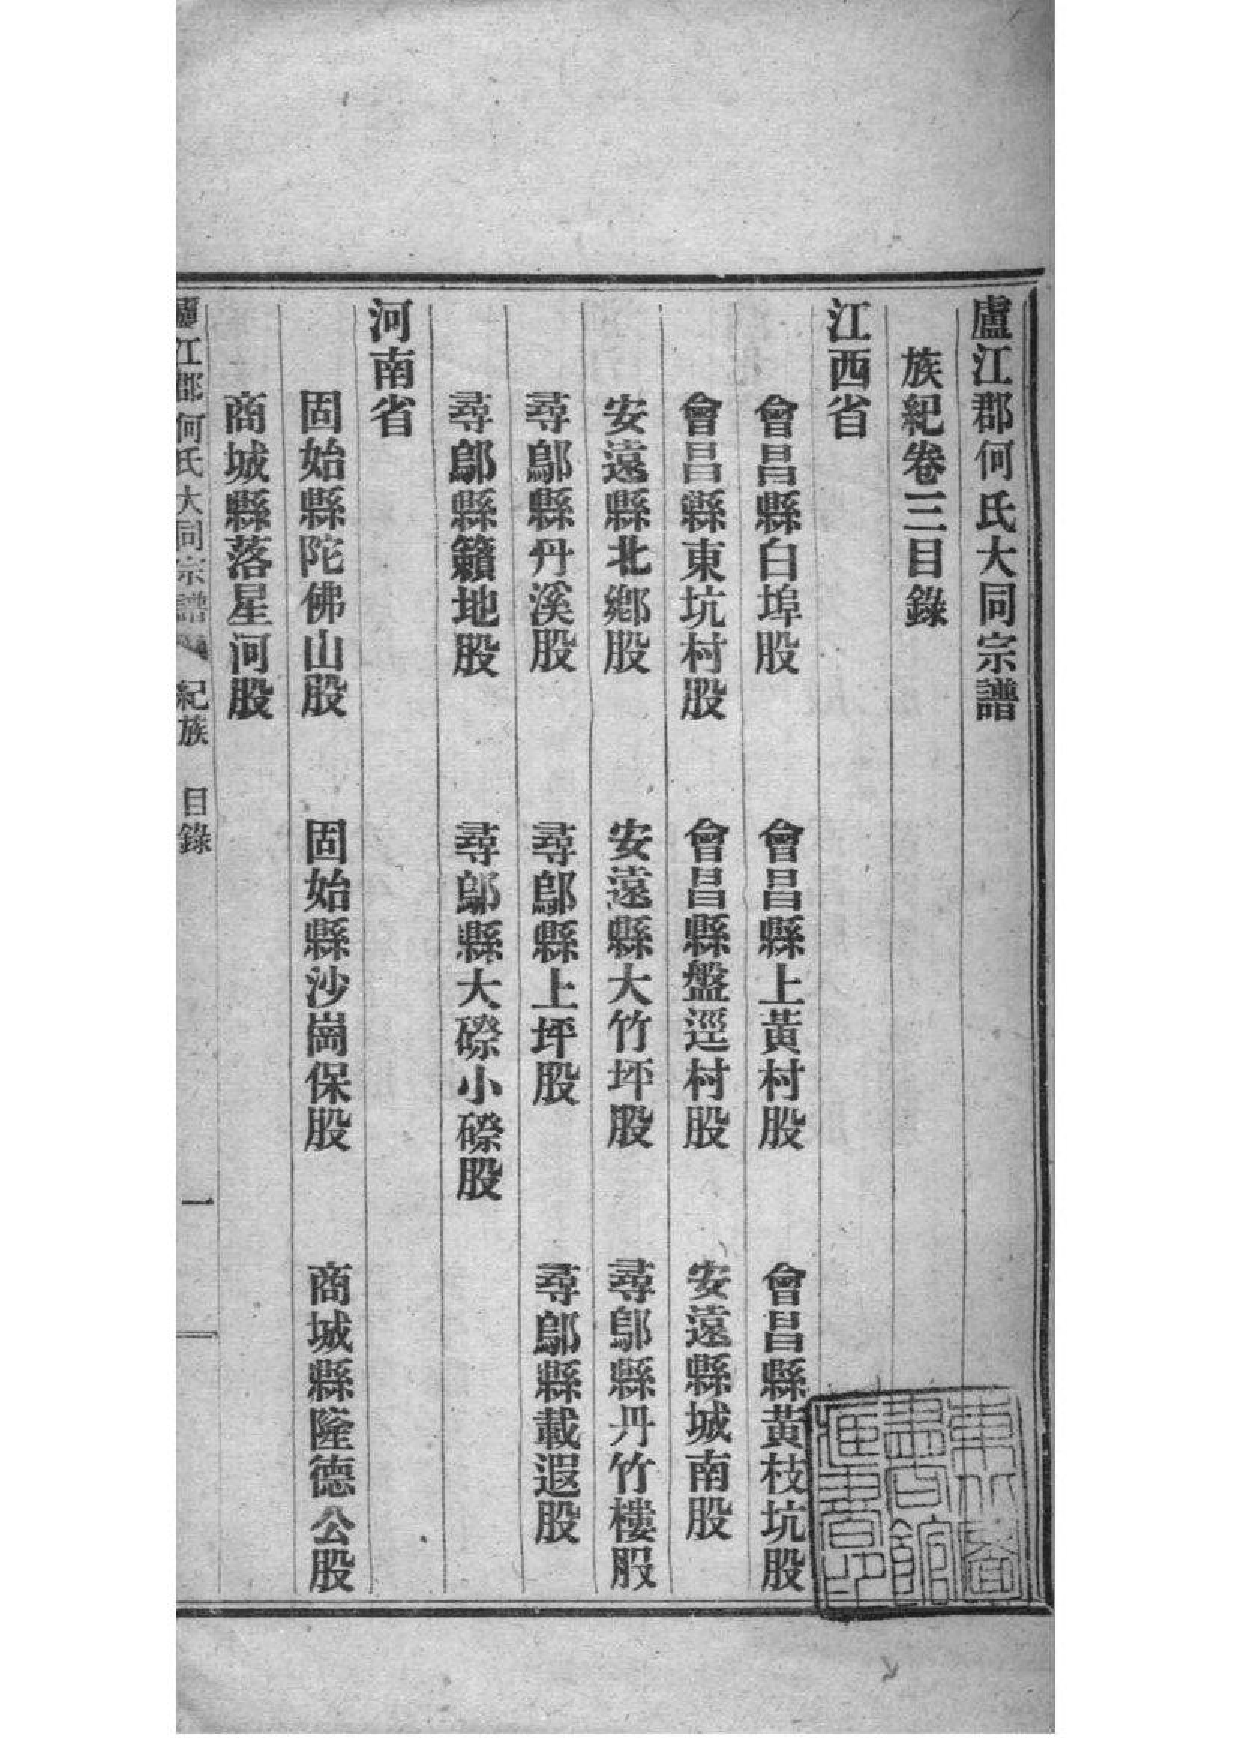 盧江郡何氏大同宗譜
族紀卷三目錄
江西省
會昌縣白埠股 會昌縣上黃村股 會昌縣黃枝坑股
會昌縣東坑村股 會昌縣盤逕村股 安遠縣城南股
安遠縣北鄉股 安遠縣大竹坪股 尋鄔縣丹竹樓股
尋鄔縣丹溪股 尋鄔縣上坪股 尋鄔縣載遐股
尋鄔縣籟地股 尋鄔縣大磜小磜股
河南省
固始縣陀佛山股 固始縣沙崗保股 商城縣隆德公股
商城縣落星河股
廬江郡何氏大同宗譜 紀族 目錄 一